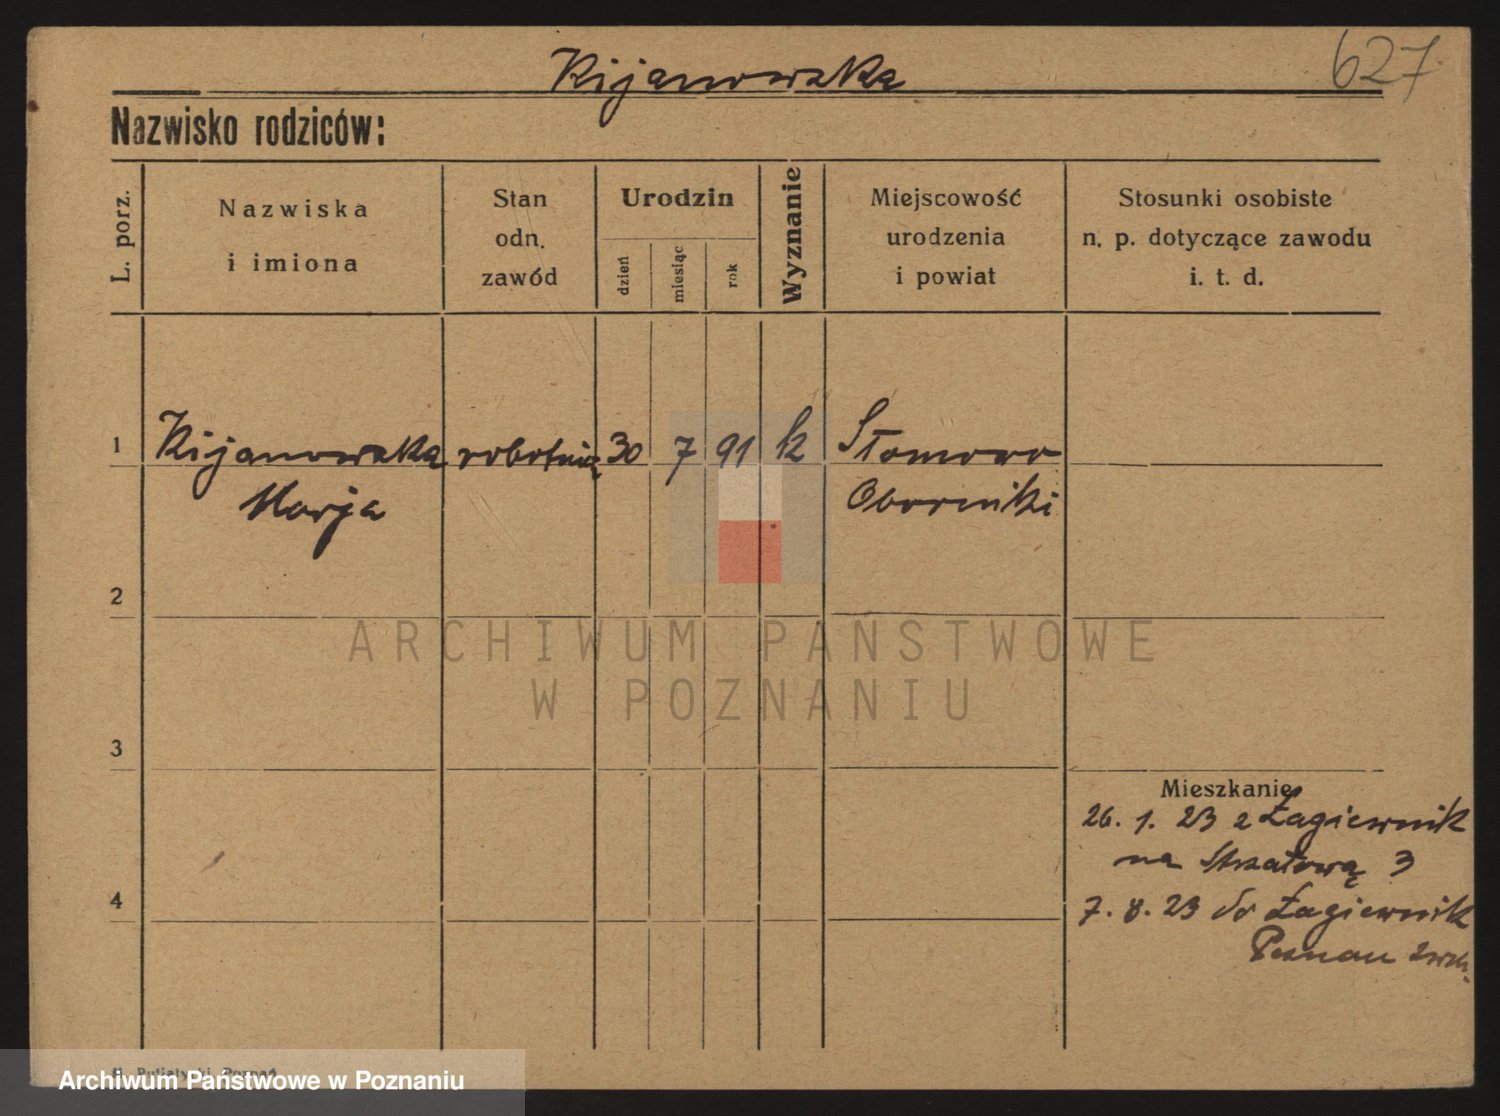 Kijanowska
627
Nazwisko rodziców:
L. porz.
Nazwiska
i imiona
Stan
odn.
zawód
Urodzin
dzień
miesiąc
rok
Wyznanie
Miejscowość
urodzenia
i powiat
Stosunki osobiste
n. p. dotyczące zawodu
i. t. d.
1 Kijanowska robotnica 30 7 91 k Słomowo
Marja Oborniki
2
3
4
Mieszkanie
26. 1. 23 z Łagiewnik
na Strzałową 3
7. 8. 23 do Łagiewnik
Poznań
ARCHIWUM PAŃSTWOWE
W POZNANIU
Poznań
Archiwum Państwowe w Poznaniu